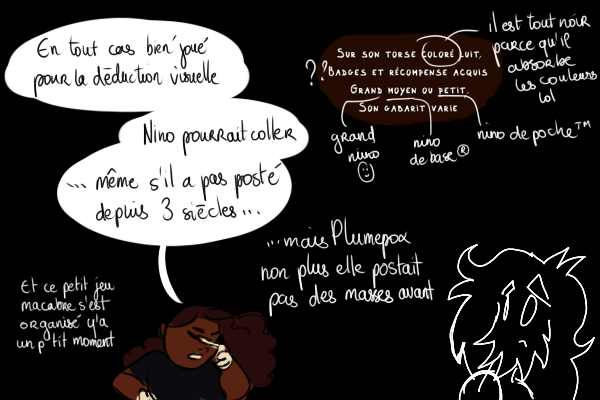 En tout cas bien joué
pour la déduction visuelle
Nino pourrait coller
... même s'il a pas posté
depuis 3 siècles...
Sur son torse coloré luit,
Badges et récompense acquis
Grand moyen ou petit,
Son gabarit varie
??
il est tout noir
parce qu'il
absorbe
les couleurs
lol
grand
nino
nino
de base ®
nino de poche™
...mais Plumepox
non plus elle postait
pas des masses avant
Et ce petit jeu
macabre s'est
organisé y'a
un p'tit moment